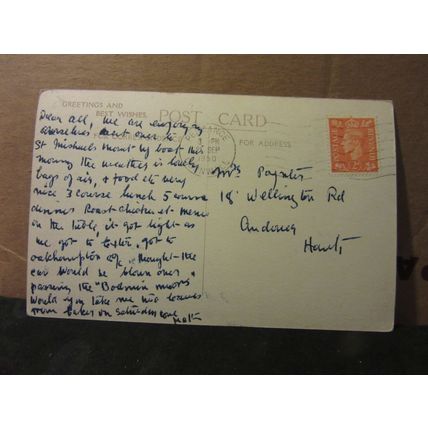 GREETINGS AND
BEST WISHES.
POST CARD
FOR ADDRESS
Dear all, we are enjoying
ourselves went over to
St Michaels Mount by boat this
morning the weather is lovely
bags of air, & food etc very
nice 3 course lunch 5 course
dinner Roast chicken et menu
on the table, it got light as
we got to Exeter, got to
oakhampton thought the
car would be blown over
passing the "Bodmin moors
would you take me two
from Bakers on Saturday
POSTAGE
REVENUE
1950
Mrs Paynter
18 Wellington Rd
Andover
Hants